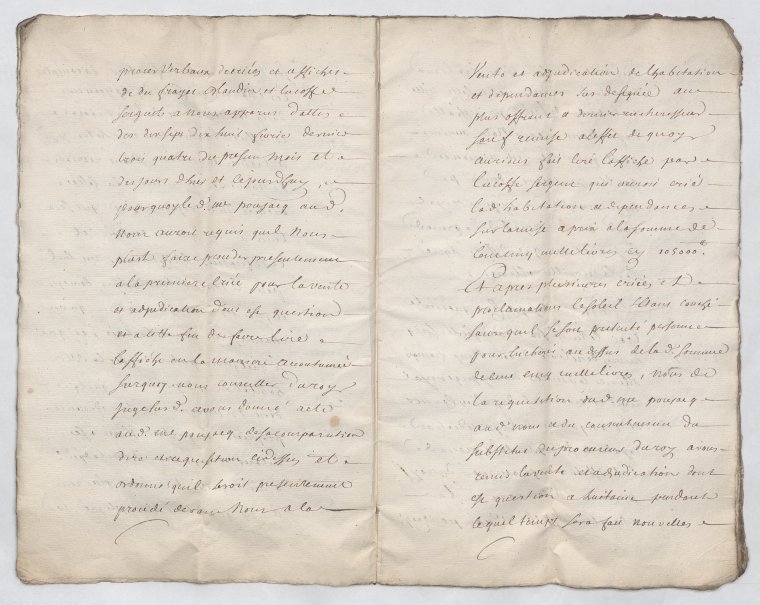 procez Verbaux de criées et affiches
de du frayet Claudin et lacoffe
sergents a nous apparus dattes
des dix sept dix huit fevrie dernier
trois quatre du present mois et
des jours d'hier et cejourdhuy
pourquoy le d. me poujacq au d.
nom auroit requis quil Nous
plaist faire proceder presentement
a la premiere criée pour la vente
et adjudication dont est question
et a cette fin de faire lire
l'affiche en la maniere accoutumée
surquoy nous conseiller du roy
juge lesd. avons donné acte
au d. me poujacq de sa comparution
dire et requisition cy dessus et
ordonné quil seroit presentement
procedé devant Nous a la
Vente et adjudication de l'habitation
et dependances sus designée au
plus offrant et dernier encherisseur
sauf remise a l'effet de quoy
aurions fait lire l'affiche par
lacoffe sergent qui auroit crié
lad. habitation et dependances
sur la mise a prix a la somme de
cent cinq mille livres cy 105000ᴸ
Et apres plusieures criées et
proclamations le soleil étant couché
sans quil se soit presenté personne
pour encherir au dessus de la d. somme
de cent cinq mille livres, Nous de
la requisition dud. me poujacq
aud. nom et du consentement du
substitut du procureur du roy avons
remis la vente et adjudication dont
est question a huitaine pendant
lequel temps sera fait nouvelles